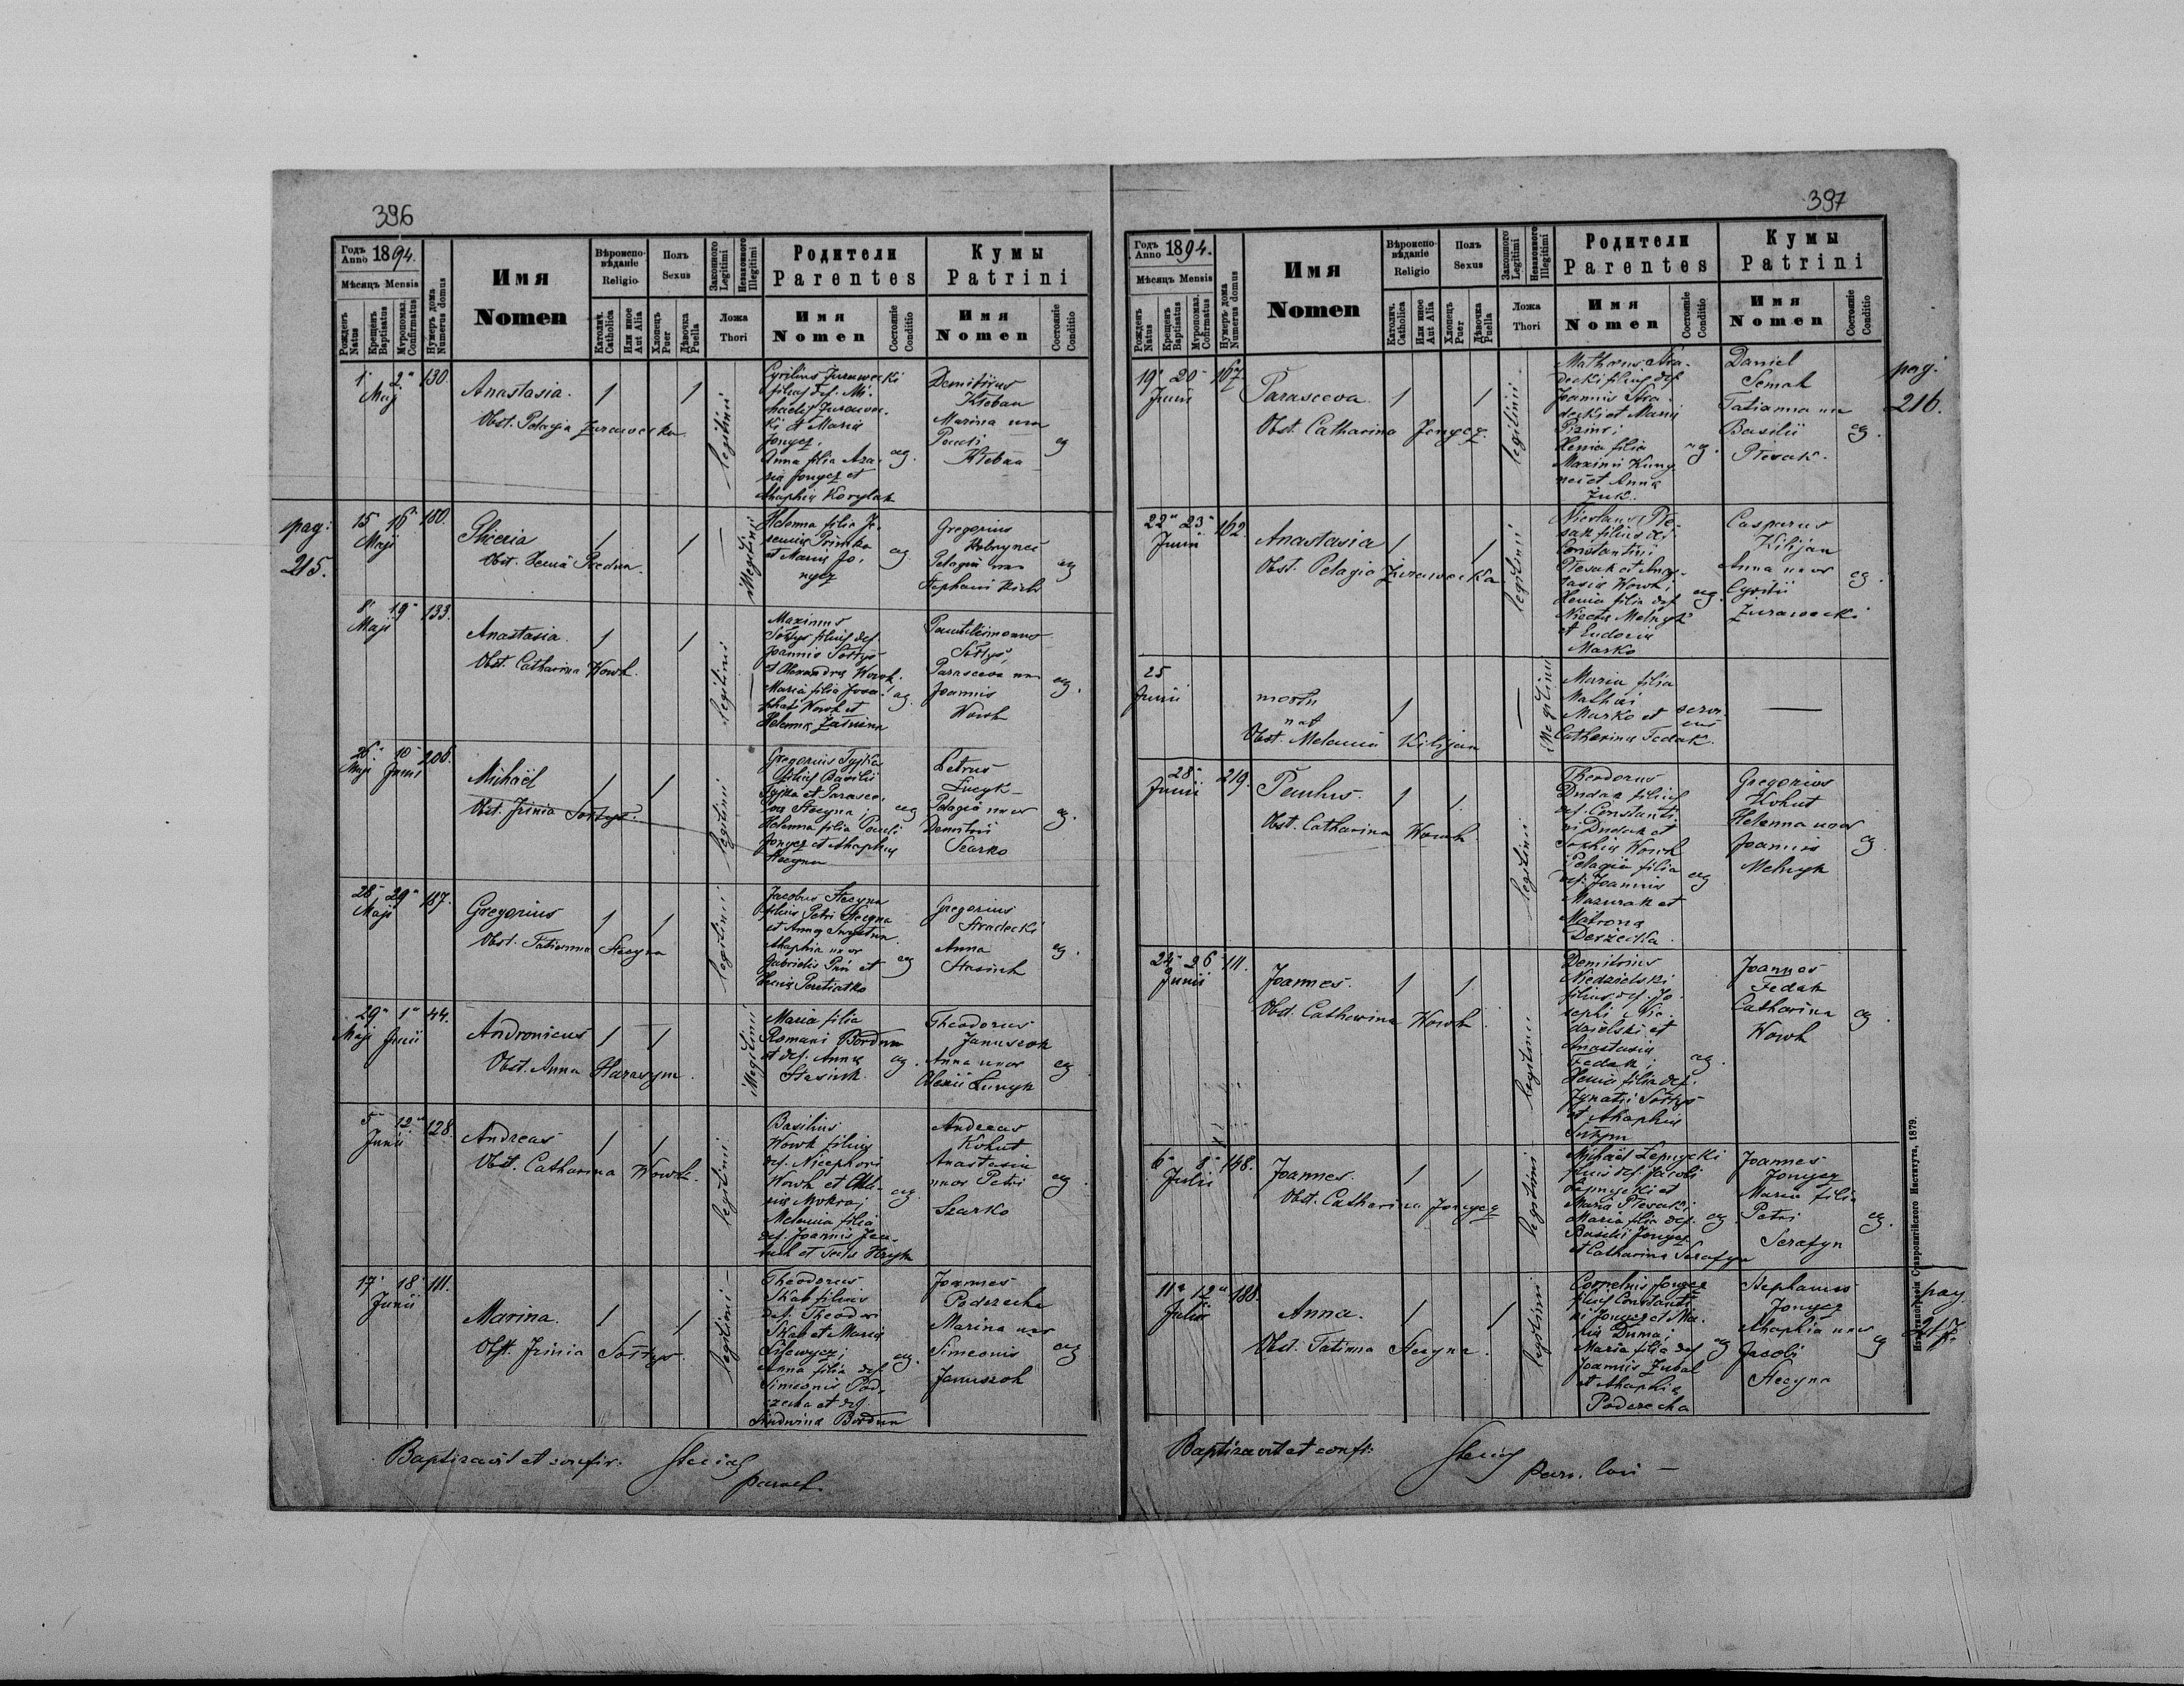 396
Годъ Anno 1894.
Мѣсяцъ Mensis
Рожденъ Natus
Крещенъ Baptisatus
Мѵропомаз. Confirmatus
Нумеръ дома Numerus domus
Имя
Nomen
Вѣроиспо-
вѣданіе
Religio
Католич. Catholica
Или иное Aut Alia
Полъ
Sexus
Хлопецъ Puer
Дѣвочка Puella
Законного Legitimi
Незаконного Illegitimi
Ложа
Thori
Родители
Parentes
Имя
Nomen
Состояніе Conditio
Кумы
Patrini
Имя
Nomen
Состояніе Conditio
1 2 130.
Maj
Anastasia.
Obst. Pelagia Zurawecka
legitimi
Cyrillus Zurawecki
filius def. Mi-
haelis Zurawec-
ki et Maria
Jonycz,
Anna filia
Jonycz et
Ahaphia Korylak
ag.
Demitrius
Kłeban
Marina uxor
Pauli
Kłeban
ag
pag:
215.
15 16 180.
Maji
Obst.
illegitimi
Helenna filia
et Maria Jo-
nycz
ag
Gregorius
Pelagia uxor
Stephani
ag
8 19 133.
Maji
Anastasia.
Obst. Catharina Wowk.
legitimi
Maximus
Sołtys filius def.
Joannis Sołtys
et Alexandra Wowk.
Maria filia Josa-
phati Wowk et
Helenna
ag.
Panteleimonus
Sołtys,
Parasceva uxor
Joannis
Wowk
ag.
26 10 206.
Maji Junii
Mihaël
Obst. Irinia Sołtys.
legitimi
Gregorius
filius Basilii
et Parasce-
va Stecyna;
Helenna filia Pauli
Jonycz et Ahaphia
Stecyna
ag
Petrus
Pelagia uxor
Demitrii
Szarko
ag.
28 29 187.
Maji
Gregorius
Obst. Tatianna Stecyna
legitimi
Jacobus Stecyna
filius Petri Stecyna
et Anna
Ahaphia uxor
Gabrielis et
Xenia Peretiatko
ag
Gregorius
Stradecki
Anna
Stasiuk
ag.
29 1 44.
Maji Junii
Andronicus
Obst. Anna Harasym.
illegitimi
Maria filia
Romani Bordun
et def. Anna
Stasiuk.
ag.
Theodorus
Januszok
Anna uxor
Alexii Lunyk
ag
5 12 128.
Junii
Andreas
Obst. Catharina Wowk.
legitimi
Basilius
Wowk filius
def. Nicephori
Wowk et
Mokra;
Melania filia
def. Joannis
et Hryk
ag.
Andreas
Kohut
Anastasia
uxor Petri
Szarko
ag.
17 18 111.
Junii
Marina.
Obst. Irinia Sołtys.
legitimi
Theodorus
Skab filius
def. Theodor
Skab et Maria
Lisewycz;
Anna filia def
Simeonis Pod-
szecha et def.
Bordun
ag.
Joannes
Podszecha
Marina uxor
Simeonis
Januszok
ag
Baptizavit et confir.
paroch.
397
Годъ Anno 1894.
Мѣсяцъ Mensis
Рожденъ Natus
Крещенъ Baptisatus
Мѵропомаз. Confirmatus
Нумеръ дома Numerus domus
Имя
Nomen
Вѣроиспо-
вѣданіе
Religio
Католич. Catholica
Или иное Aut Alia
Полъ
Sexus
Хлопецъ Puer
Дѣвочка Puella
Законного Legitimi
Незаконного Illegitimi
Ложа
Thori
Родители
Parentes
Имя
Nomen
Состояніе Conditio
Кумы
Patrini
Имя
Nomen
Состояніе Conditio
19 20 167
Junii
Parasceva
Obst. Catharina Jonycz.
legitimi
Matheus Stra-
decki filius def
Joannis Stra-
decki et Maria
Xenia filia
Maximi
et Anna
Juk.
ag.
Daniel
Semak
Tatianna uxor
Basilii
Plesak.
ag.
pag.
216.
22 23 162
Junii
Anastasia
Obst. Pelagia Zurawecka.
legitimi
Nicolaus Ple-
sak filius def
Constantini
Plesak et Anas-
tasia Wowk,
Xenia filia def
Nicetae Melnyk
et Eudoxia
Marko
ag.
Casparus
Kilijan
Anna uxor
Cyrilli
Zurawecki
ag.
25
Junii
mortu
nat
Obst. Melania Kilijan
illegitimi
Maria filia
Mathei
Marko et
Catharina Fedak.
28 219.
Junii
Paulus.
Obst. Catharina Wowk
legitimi
Theodorus
Dudak filius
def. Constanti-
ni Dudak et
Sophia Wowk
Pelagia filia
def. Joannis
Mazurak et
Matrona
ag
Gregorius
Kohut
Helenna uxor
Joannis
Melnyk
ag.
24 26 111.
Junii
Joannes.
Obst. Catharina Wowk.
legitimi
Demitrius
Niedzielski
filius def. Jo-
sephi Nie-
dzielski et
Anastasia
Fedak;
Xenia filia def.
Ignatii Sołtys
et Ahaphia
ag.
Joannes
Fedak
Catharina
Wowk
ag.
6 8 148.
Julii
Joannes.
Obst. Catharina Jonycz
legitimi
Mihaël Lepnycki
filius def. Jacobi
Lepnycki et
Maria Plesak;
Maria filia def.
Basilii Jonycz
et Catharina Serafyn
ag.
Joannes
Jonycz
Maria filia
Petri
Serafyn
ag.
11 12 188
Julii
Anna.
Obst. Tatianna Stecyna.
legitimi
Cornelius Jonycz
filius Constanti-
ni Jonycz et Ma-
ria Duma;
Maria filia def
Joannis Zubal
et Ahaphia
Podszecha
ag
Stephanus
Jonycz
Ahaphia uxor
Jacobi
Stecyna
ag
pag.
217.
Baptizavit et confir:
Изъ типографіи Ставропигійского Института, 1879.